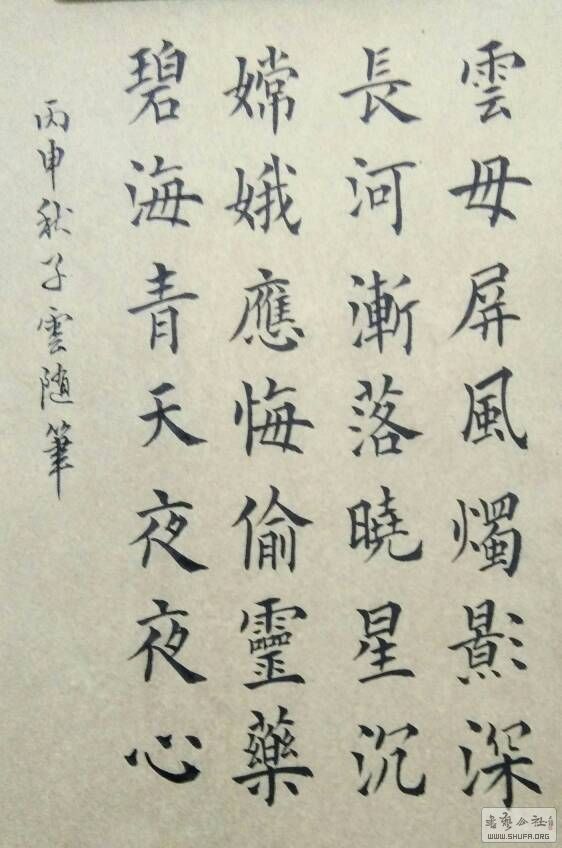 雲母屏風燭影深
長河漸落曉星沉
嫦娥應悔偷靈藥
碧海青天夜夜心
丙申秋子雲随筆
书艺公社
WWW.SHUFA.ORG